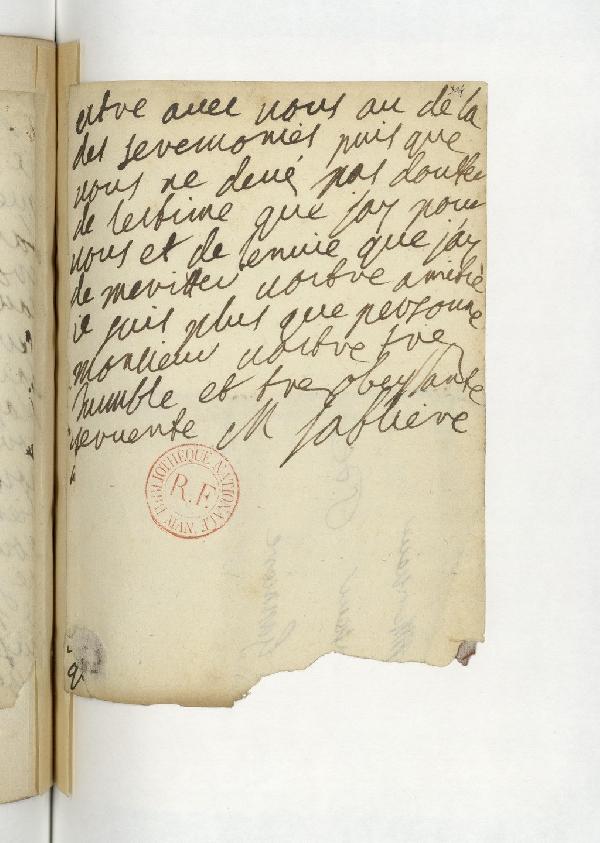 estre avec vous au de la
des seremonies puis que
vous ne deué pas douter
de lestime que jay pour
vous et de lenuie que jay
de meriter vostre amitié
ie suis plus que personne
monsieur vostre tres
humble et tre obeysante
seruente M Sabliere
BIBLIOTHEQUE NATIONALE
R.F.
MAN.